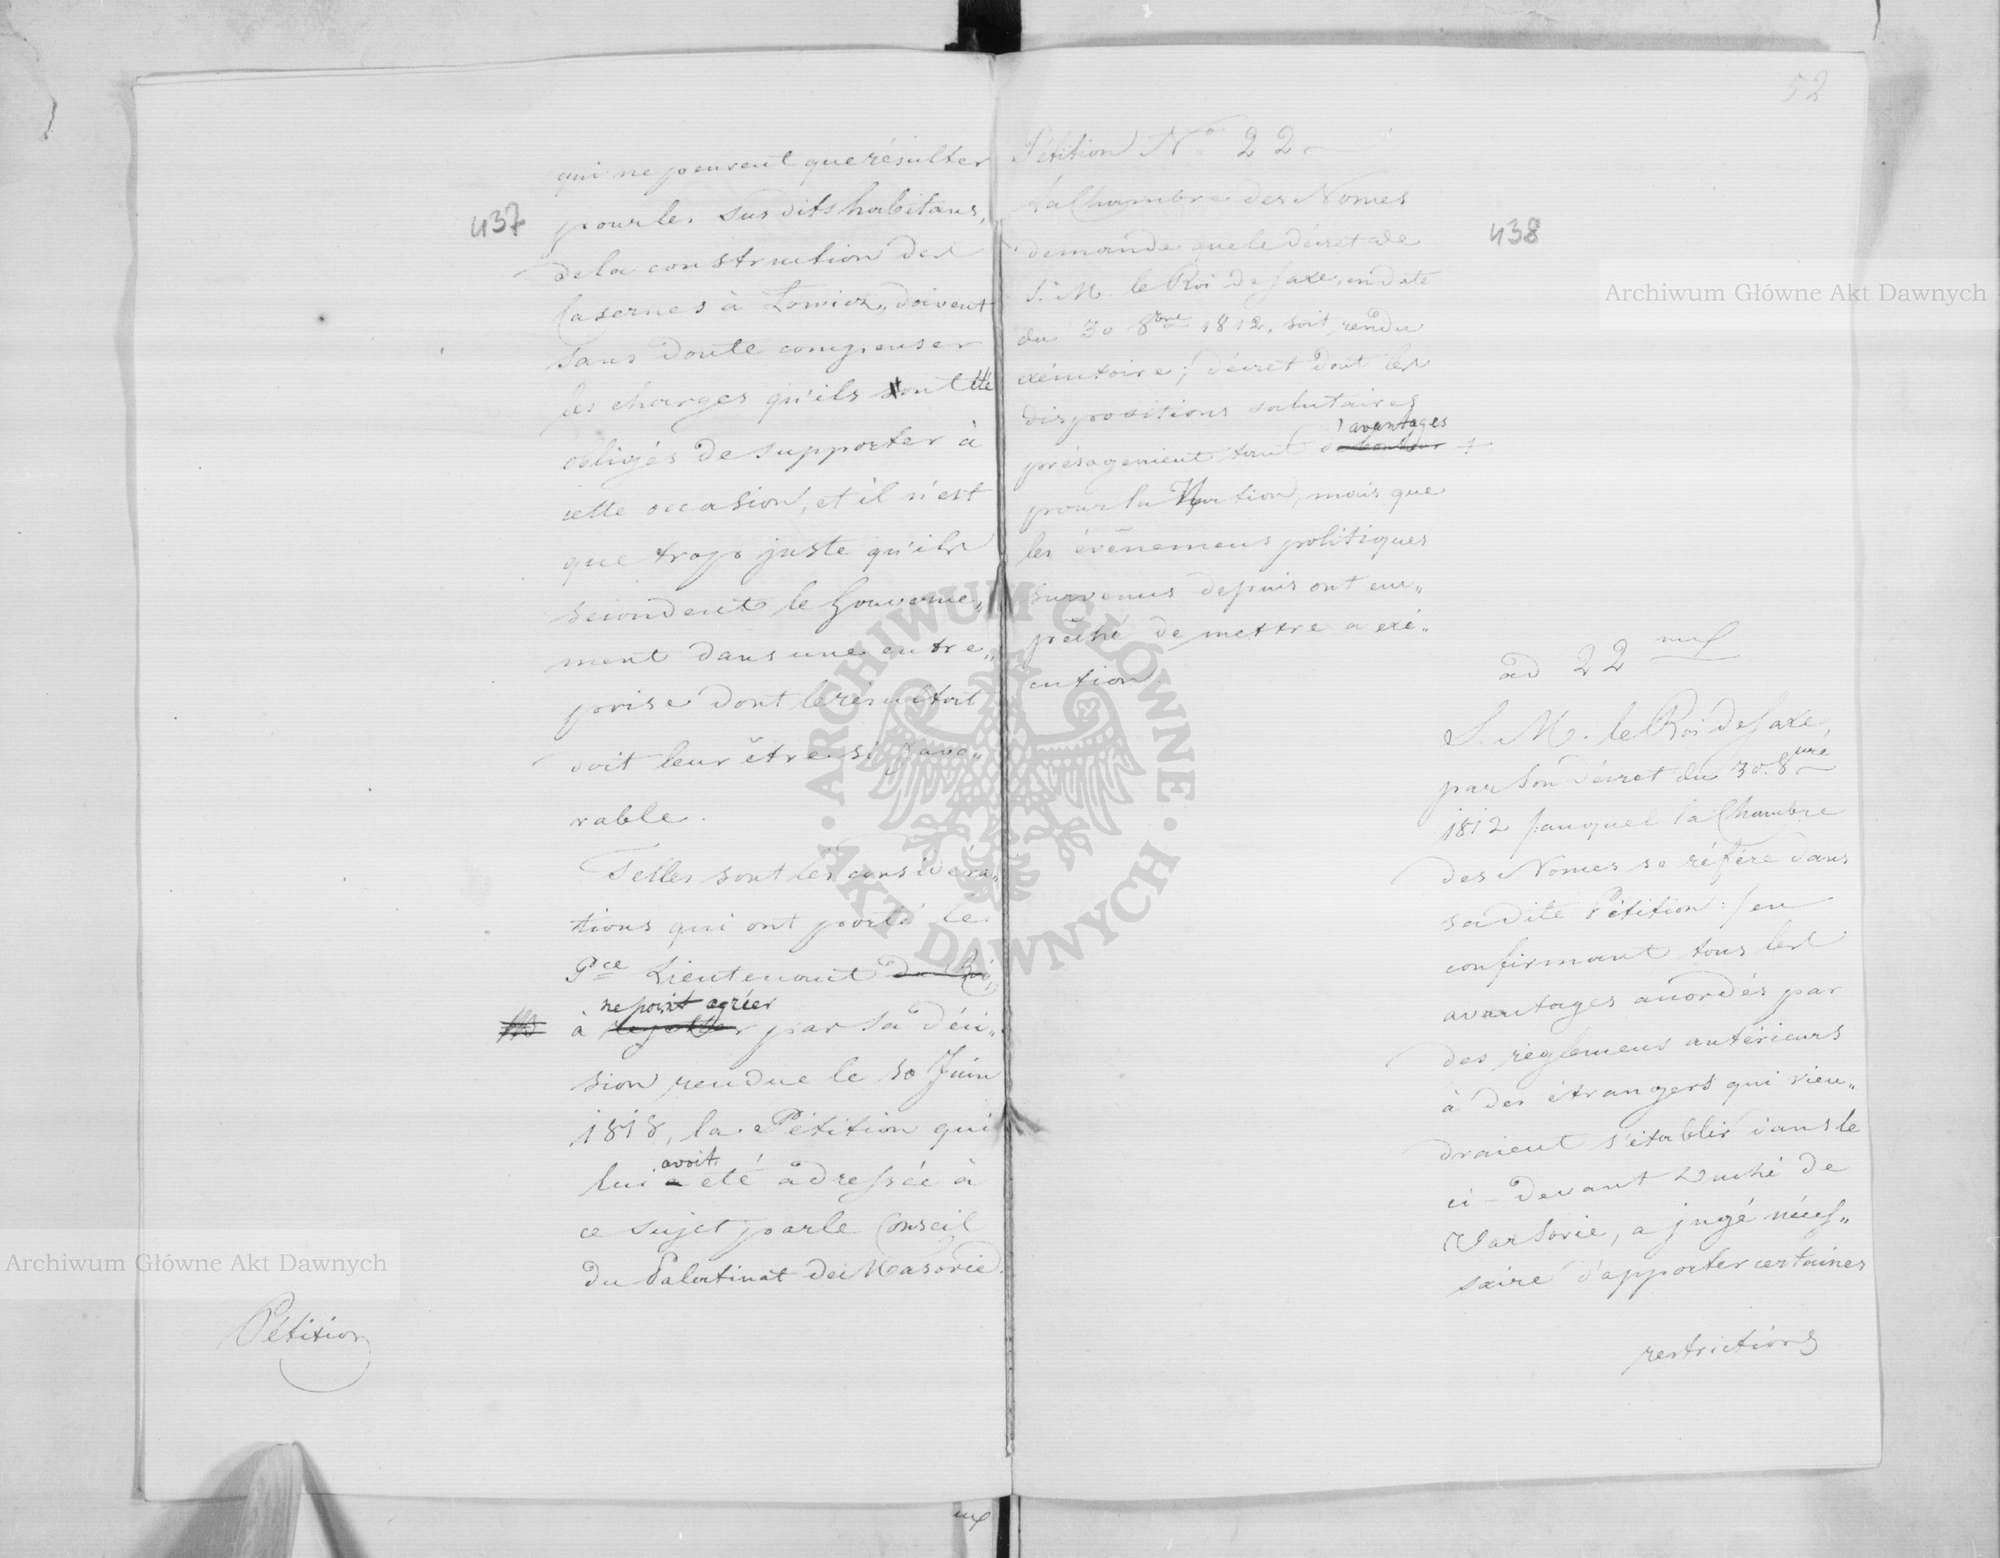 437
qui ne peuvent que résulter
pour les susdits habitans,
de la construction des
Casernes à Lowicz, doivent
sans doute compenser
les charges qu'ils ont été
obligés de supporter à
cette occasion, et il n'est
que trop juste qu'ils
secondent le Gouverne„
ment dans une entre„
prise dont le résultat
doit leur être si favo„
rable.
Telles sont les considéra„
tions qui ont porté le
Pce Lieutenant du Roi,
ne point agréer
à rejetter par sa déci„
sion rendue le 30 Juin
1818, la Pétition qui
avoit
lui a été adressée à
ce sujet par le Conseil
du Palatinat de Masovie.
Pétition
52
438
Pétition No 22
La Chambre des Nonces
demande que le décret de
S. M. le Roi de Saxe, en date
du 30 8bre 1812, soit rendu
exécutoire; décret dont les
dispositions salutaires
avantages
présageaient tant de bonheur
pour la Nation, mais que
les évènemens politiques
survenus depuis ont em„
pêché de mettre a exé„
cution.
ad 22
S. M. le Roi de Saxe,
par Son Décret du 30 8bre
1812 /auquel la Chambre
des Nonces se réfère dans
sa dite Pétition:/ en
confirmant tous les
avantages accordés par
des règlemens antérieurs
à des étrangers qui vien„
draient s'établir dans le
ci-devant Duché de
Varsovie, a jugé néces„
saire d'apporter certaines
restrictions
Archiwum Główne Akt Dawnych
Archiwum Główne Akt Dawnych
ARCHIWUM GŁÓWNE · AKT DAWNYCH ·